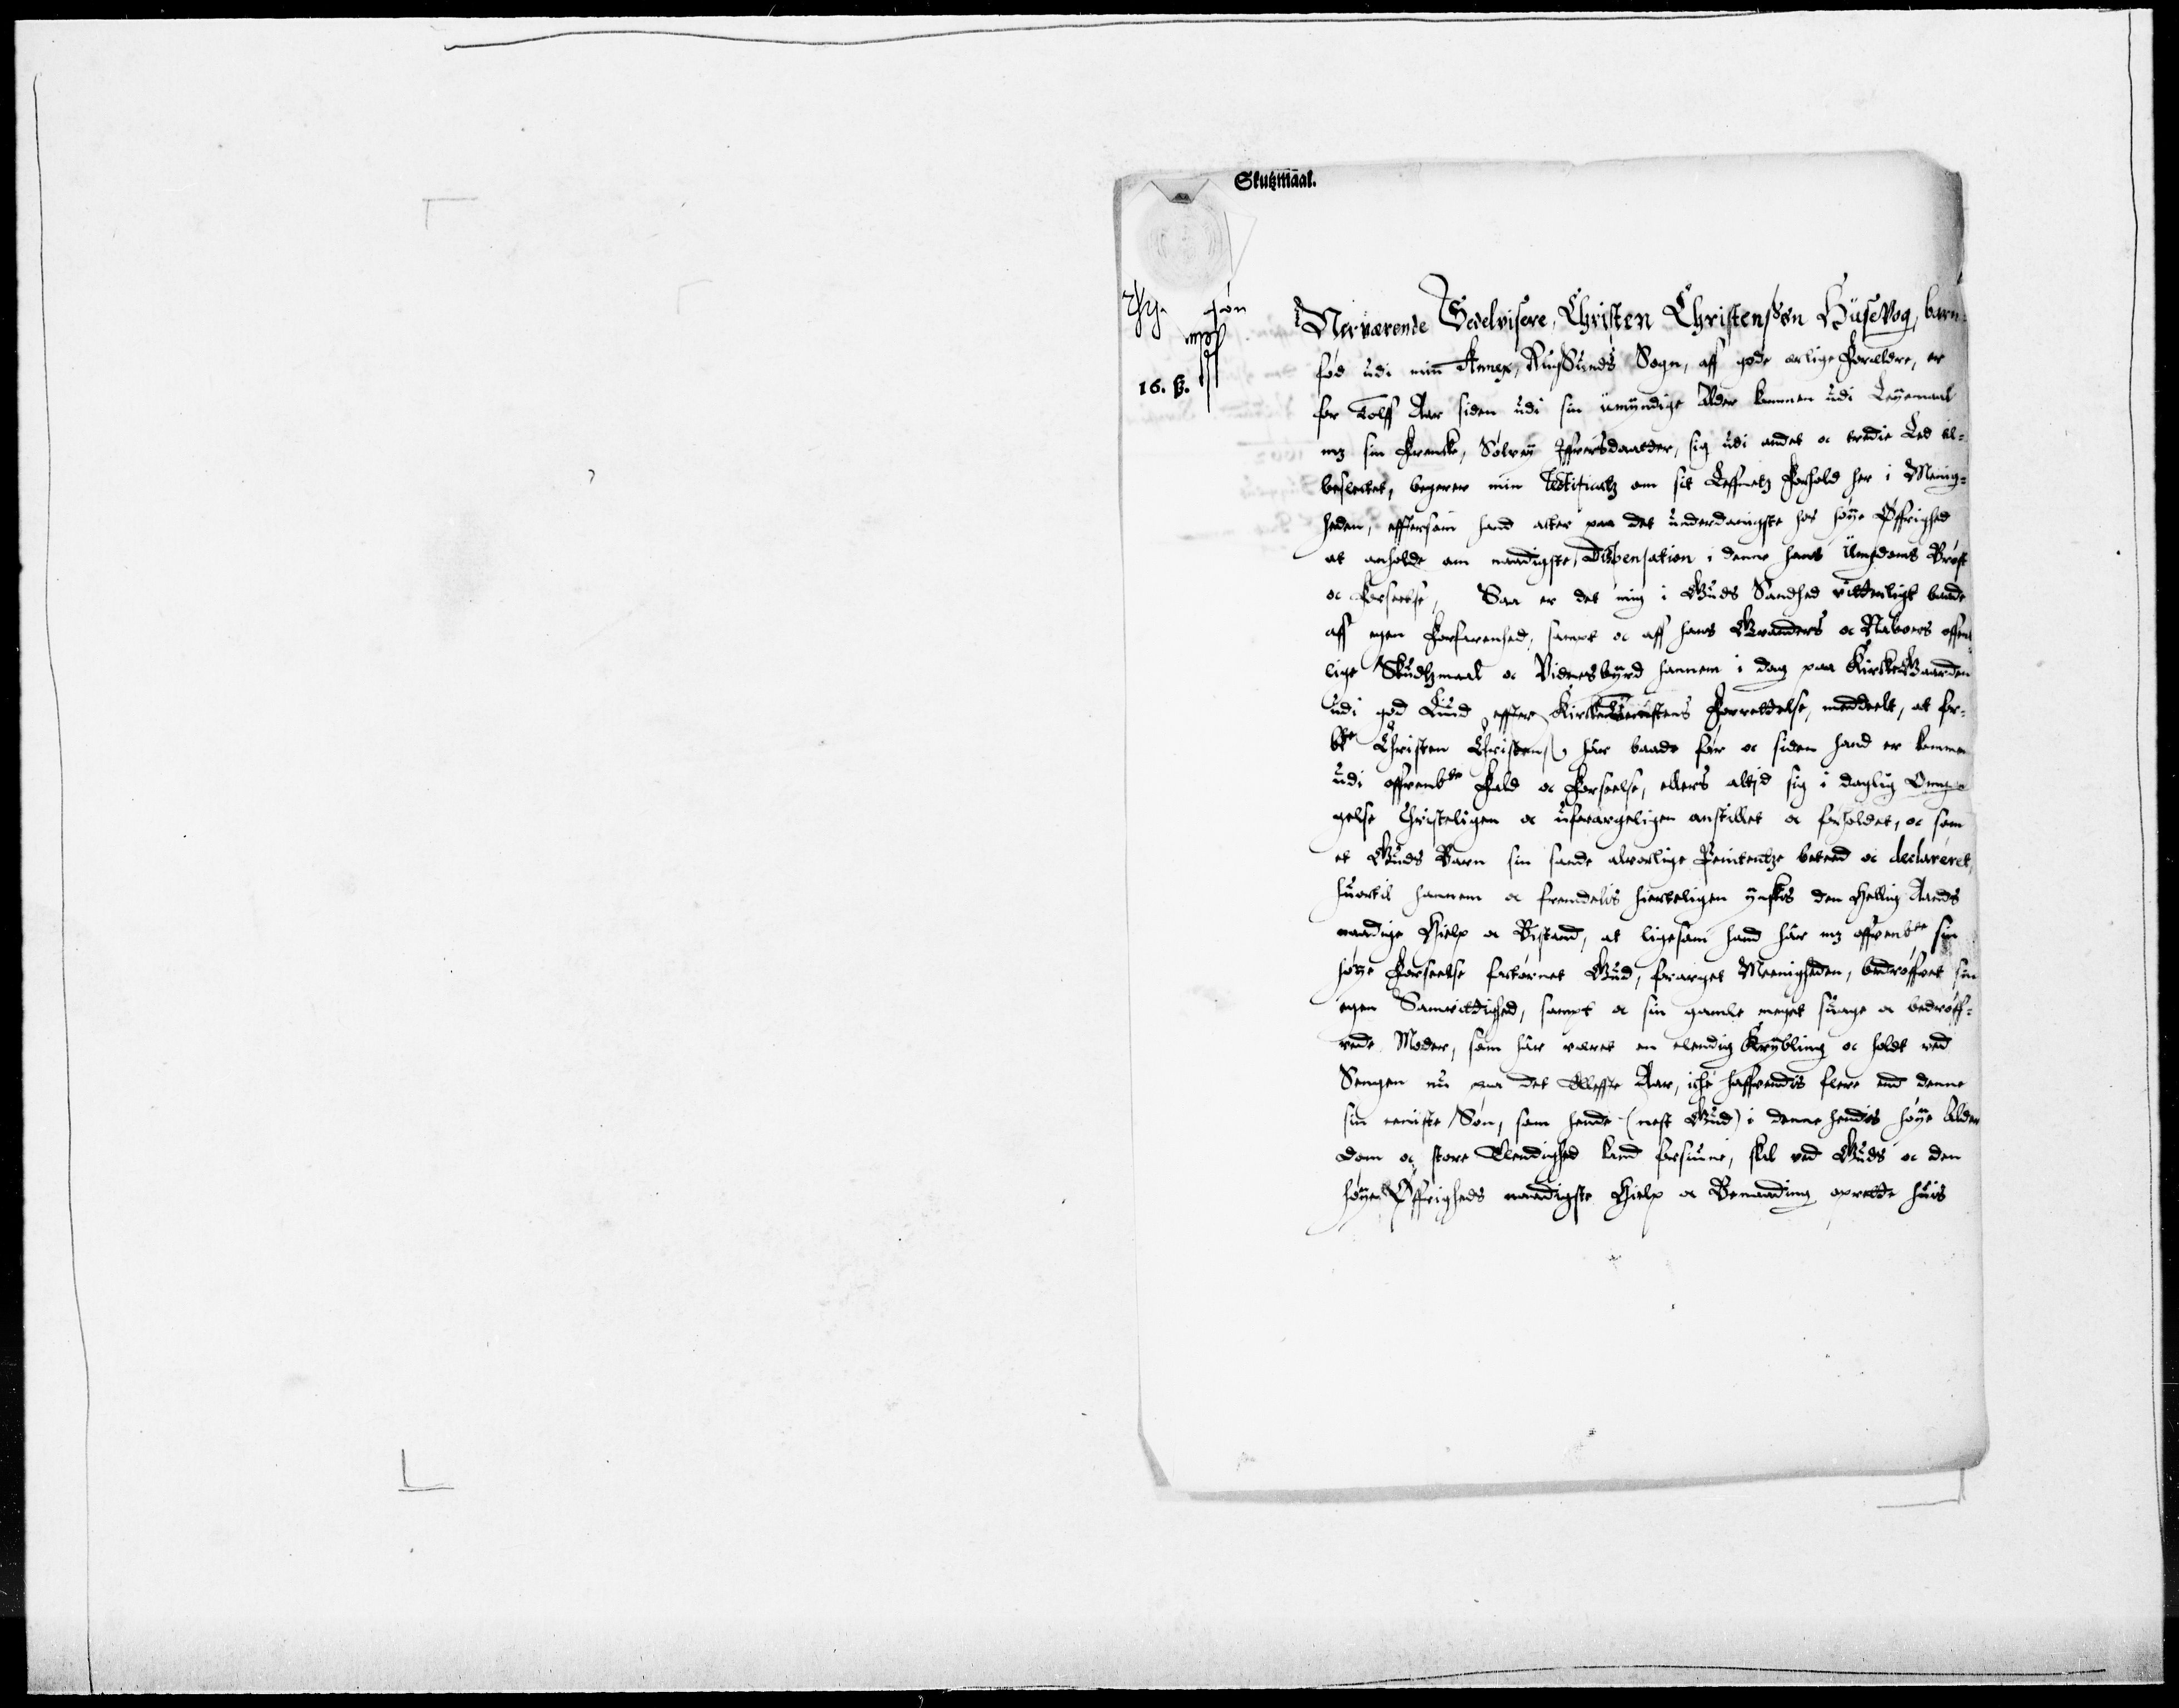 Skutzmaal.
16. ß.
Nerværende Sedelvisere, Christen Christensøn Husevog, barn-
fød udi min Annex, Russunds Sogn, aff gode ærlige Forældre, er
for Tolff Aar siden udi sin umyndige Alder kommen udi Leyemaal
mz sin Frencke, Solvey Iffversdaatter, sig udi andet oc tredie Led til-
beslectet, begerer min Testificatz om sit Leffnetz Forhold her i Menig-
heden, efftersom hand acter paa det underdanigste hos høye Øffrighed
at anholde om naadigste Dispensation i denne hans Ungdoms Brøst
oc Forseelse, Saa er det mig i Guds Sandhed vitterligt baade
aff egen Forfarenhed, sampt oc aff hans Granders oc Naboers offent-
lige Skudtzmaal oc Vidnesbyrd hannem i dag paa KirkeGaarden
udi god Liud effter Kirketienistens Forrettelse, meddeelt, at for-
bte Christen Christens. hâr baade før oc siden hand er kommen
udi offvenbte Fald oc Forseelse, ellers altjd sig i daglig Omgen-
gelse Christeligen oc uforargeligen anstillet oc forholdet, oc som
et Guds Barn sin sande alvorlige Penitentze beteed oc declareret,
huortil hannem oc fremdelis hierteligen ynskis den Hellig Aands
naadige Hielp oc Bistand, at ligesom hand hâr mz offvenbte sin
høye Forseelse fortørnet Gud, forarget Meenigheden, bedrøffvet sin
egen Samvittighed, sampt oc sin gamle meget suage oc bedrøff-
vede Moder, som hâr været en elendig Krybling oc holdt ved
Sengen nu paa det Elleffte Aar, iche haffvendis flere end denne
sin eeniste Søn, som hende (nest Gud) i denne hendis høye Alder
dom oc store Elendighed kand forsiune, skal ved Guds oc den
høye Øffrigheds naadigste Hielp oc Benaading oprette huis